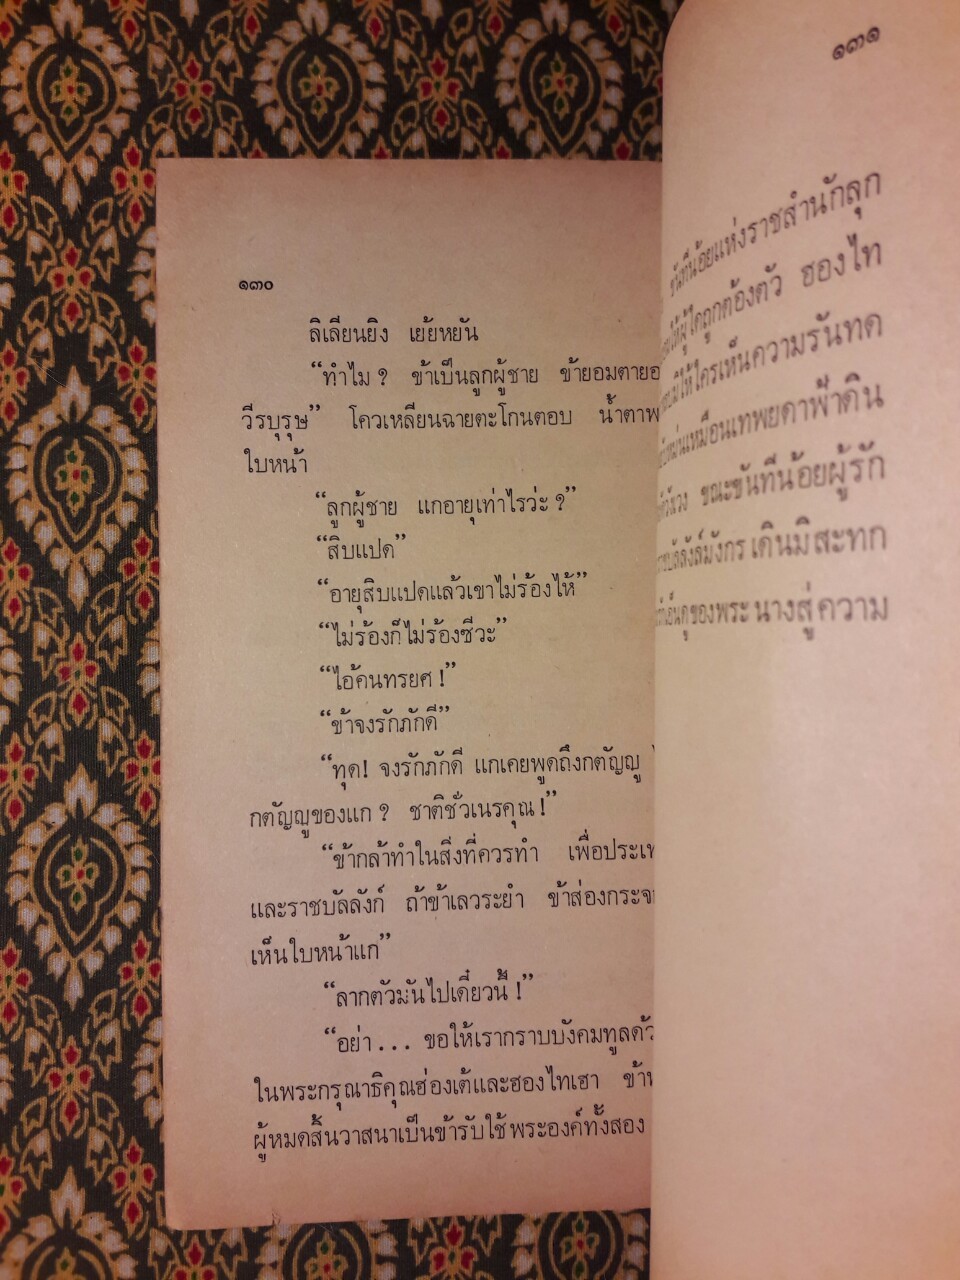 ๑๓๐
ลิเลียนยิง เยัยหยัน
“ทำไม ? ข้าเป็นลูกผู้ชาย ข้ายอมตาย
วีรบุรุษ” โควเหลียนฉายตะโกนตอบ น้ำตา
ใบหน้า
“ลูกผู้ชาย แกอายุเท่าไรว่ะ ?”
“สิบแปด”
“อายุสิบแปดแล้วเขาไม่ร้องไห้”
“ไม่ร้องก็ไม่ร้องซีวะ”
“ไอ้คนทรยศ !”
“ข้าจงรักภักดี”
“ทุด! จงรักภักดี แกเคยพูดถึงกตัญญู
กตัญญูของแก ? ชาติชั่วเนรคุณ !”
“ข้ากล้าทำในสิ่งที่ควรทำ เพื่อ
และราชบัลลังก์ ถ้าข้าเลวระยำ ข้าส่อง
เห็นใบหน้าแก”
“ลากตัวมันไปเดี๋ยวนี้ !”
“อย่า . . . ขอให้เรากราบบังคมทูล
ในพระกรุณาธิคุณฮ่องเต้และฮองไทเฮา
ผู้หมดสิ้นวาสนาเป็นข้ารับใช้พระองค์ทั้งสอง
๑๓๑
ขันทีน้อยแห่งราชสำนักลุก
ให้ผู้ใดถูกต้องตัว ฮองไท
มิให้ใครเห็นความรันทด
เหมือนเทพยดาฟ้าดิน
ขณะขันทีน้อยผู้รัก
บัลลังก์มังกร เดินมิสะทก
ของพระนางสู่ความ